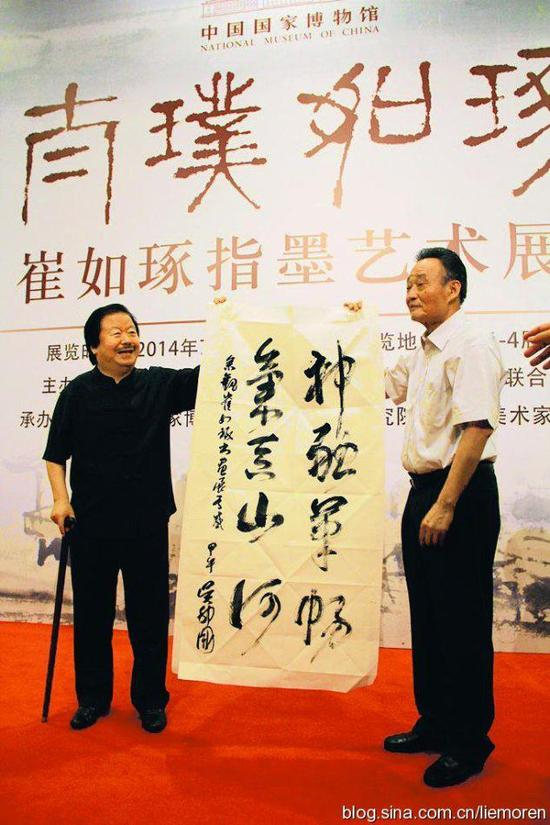 中国国家博物馆
NATIONAL MUSEUM OF CHINA
璞如琢
崔如琢指墨艺术展
展览 2014年 览地 -4层
主办 联合
承办 家博 究院 美术家
神融笔畅
氣 山河
觀崔如琢书画展有感 甲午 吴邦国
blog.sina.com.cn/liemoren